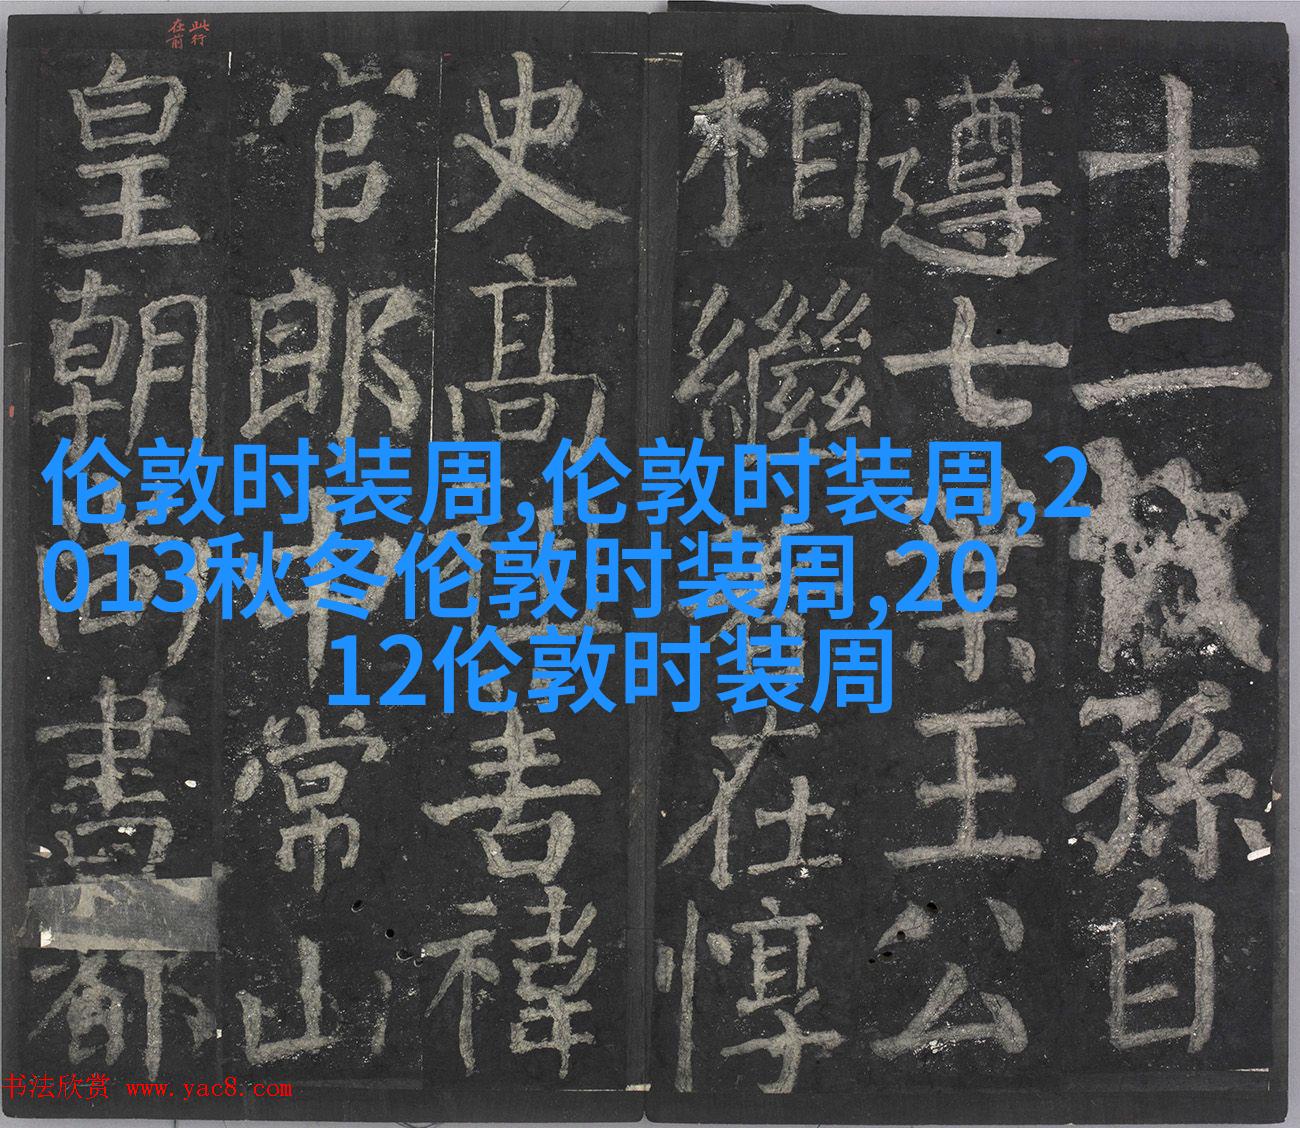 此行
在前
十二孫自
遵七葉王公
相繼在惇
史高褘
官郎中常山
皇朝尚書都
伦敦时装周,伦敦时装周,2
013秋冬伦敦时装周,20
12伦敦时装周
书法欣赏 www.yac8.com